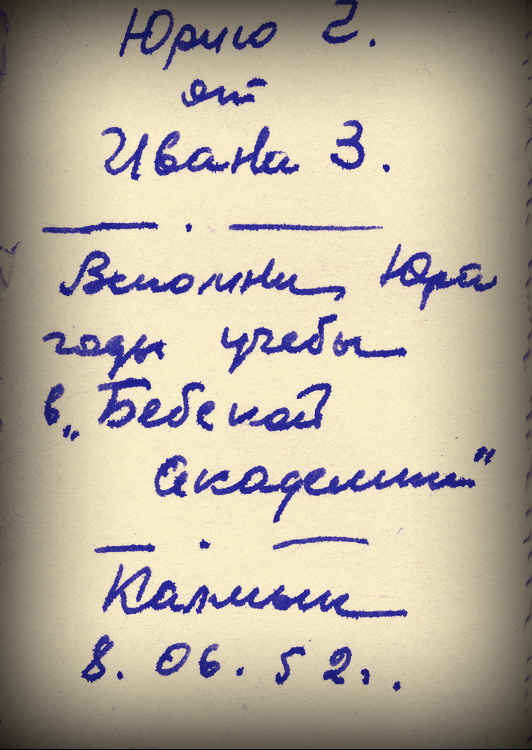 Юрию Г.
от
Ивана З.
— . —
Вспомни, Юра
годы учебы
в „Бебской
Академии"
— . —
Калмык
8. 06. 52г.